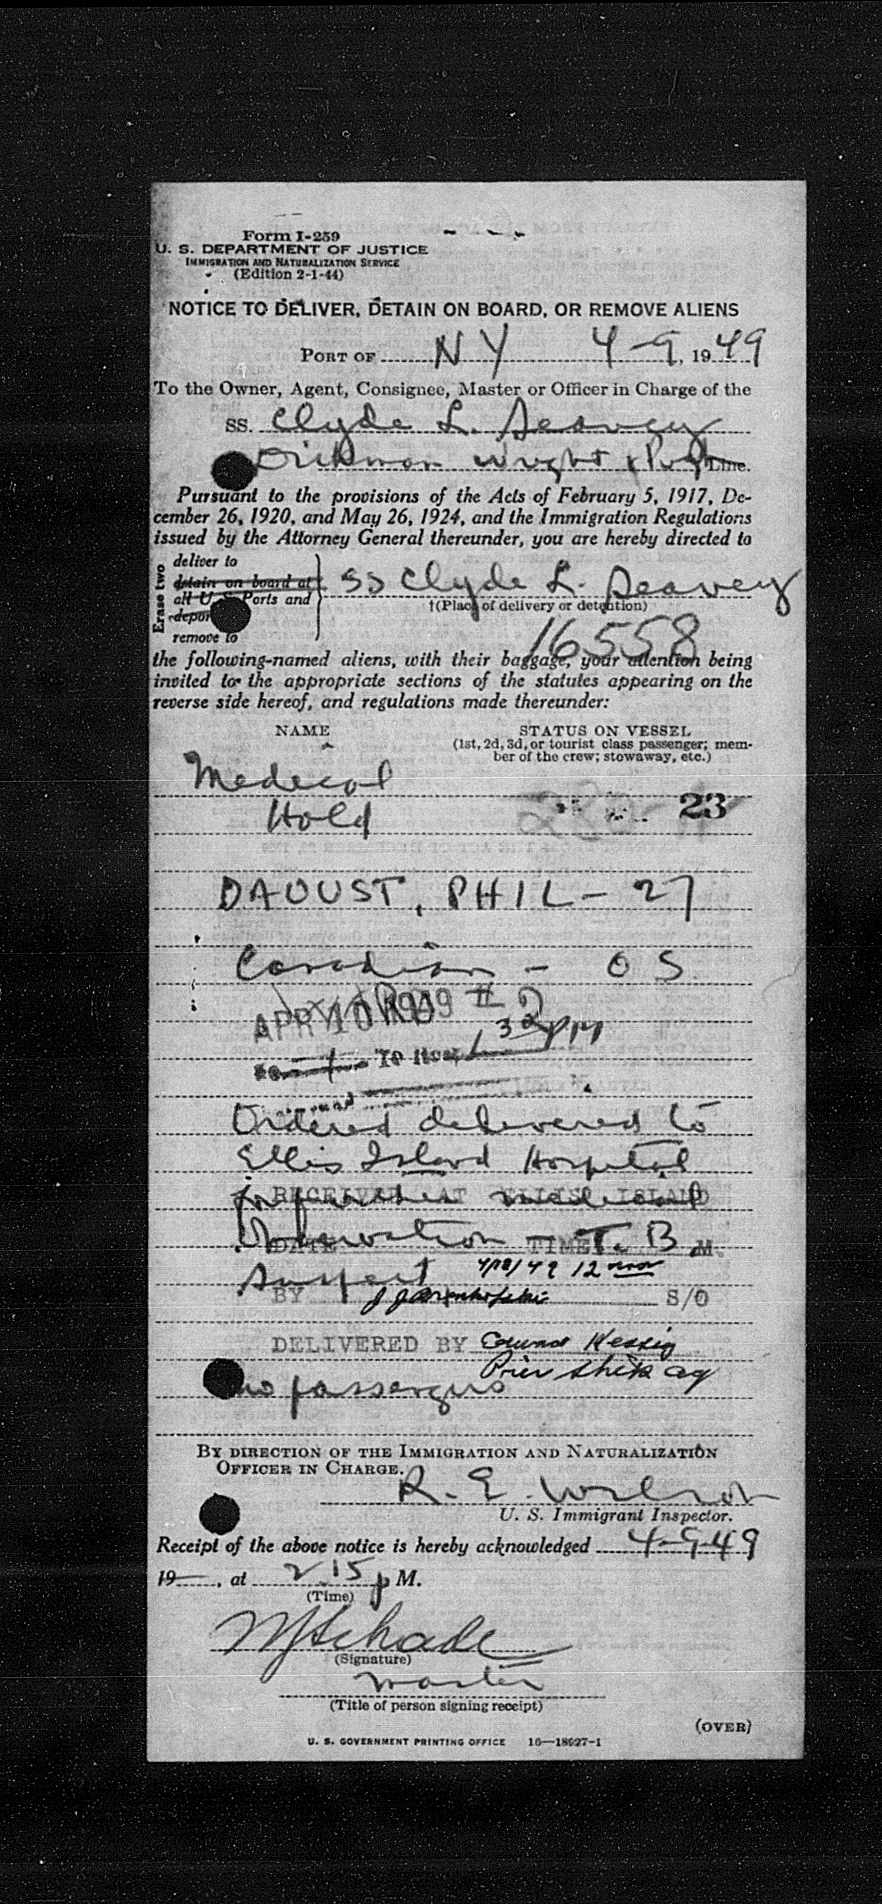 Form I-259
U. S. DEPARTMENT OF JUSTICE
IMMIGRATION AND NATURALIZATION SERVICE
(Edition 2-1-44)
NOTICE TO DELIVER, DETAIN ON BOARD, OR REMOVE ALIENS
PORT OF NY 4-9, 1949
To the Owner, Agent, Consignee, Master or Officer in Charge of the
SS. Clyde L. Seavey
Wright & Line.
Pursuant to the provisions of the Acts of February 5, 1917, De-
cember 26, 1920, and May 26, 1924, and the Immigration Regulations
issued by the Attorney General thereunder, you are hereby directed to
Erase two
deliver to
detain on board at
all U. S. Ports and
depor
remove to
SS Clyde L. Seavey
†(Place of delivery or detention)
16558
the following-named aliens, with their baggage, your attention being
invited to the appropriate sections of the statutes appearing on the
reverse side hereof, and regulations made thereunder:
NAME
STATUS ON VESSEL
(1st, 2d, 3d, or tourist class passenger; mem-
ber of the crew; stowaway, etc.)
Medical
Hold
23
DAOUST, PHIL - 27
Canadian - OS
APR 10 1949 # 2
1 32 PM
Ordered delivered to
Ellis Island Hospital
RECEIVED AT ELLIS ISLAND
for further medical
observation - T. B.
DATE TIME M.
Suspect 4/10/49 12 noon
BY S/O
DELIVERED BY Edward Hessig
no passengers
BY DIRECTION OF THE IMMIGRATION AND NATURALIZATION
OFFICER IN CHARGE.
R. E. Wilson
U. S. Immigrant Inspector.
Receipt of the above notice is hereby acknowledged 4-9-49
19, at 2 15 p M.
(Time)
MJSchade
(Signature)
Master
(Title of person signing receipt)
(OVER)
U. S. GOVERNMENT PRINTING OFFICE 16—18927-1